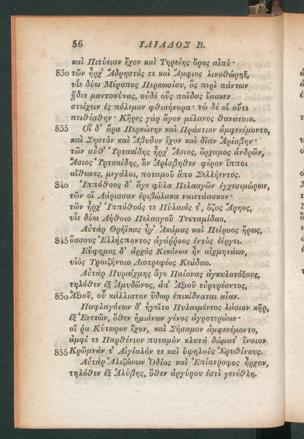 56 ΙΛΙΑΔΟΣ Β.
καὶ Πιτύειαν ἔχον καὶ Τηρείης ὄρος αἰπύ·
830 τῶν ἦρχ' Ἄδρηστός τε καὶ Ἄμφιος λινοθώρηξ,
υἷε δύω Μέροπος Περκωσίου, ὃς περὶ πάντων
ᾔδεε μαντοσύνας, οὐδὲ οὓς παῖδας ἔασκεν
στείχειν ἐς πόλεμον φθισήνορα· τὼ δέ οἱ οὔτι
πειθέσθην· Κῆρες γὰρ ἄγον μέλανος θανάτοιο.
835 Οἳ δ' ἄρα Περκώτην καὶ Πράκτιον ἀμφενέμοντο,
καὶ Σηστὸν καὶ Ἄβυδον ἔχον καὶ δῖαν Ἀρίσβην·
τῶν αὖθ' Ὑρτακίδης ἦρχ' Ἄσιος, ὄρχαμος ἀνδρῶν,
Ἄσιος Ὑρτακίδης, ὃν Ἀρίσβηθεν φέρον ἵπποι
αἴθωνες, μεγάλοι, ποταμοῦ ἄπο Σελλήεντος.
840 Ἱππόθοος δ' ἄγε φῦλα Πελασγῶν ἐγχεσιμώρων,
τῶν οἳ Λάρισσαν ἐριβώλακα ναιετάασκον·
τῶν ἦρχ' Ἱππόθοός τε Πύλαιός τ', ὄζος Ἄρηος,
υἷε δύω Λήθοιο Πελασγοῦ Τευταμίδαο.
Αὐτὰρ Θρήϊκας ἦγ' Ἀκάμας καὶ Πείροος ἥρως,
845 ὅσσους Ἑλλήσποντος ἀγάῤῥοος ἐντὸς ἐέργει.
Εὔφημος δ' ἀρχὸς Κικόνων ἦν αἰχμητάων,
υἱὸς Τροιζήνοιο Διοτρεφέος Κεάδαο.
Αὐτὰρ Πυραίχμης ἄγε Παίονας ἀγκυλοτόξους,
τηλόθεν ἐξ Ἀμυδῶνος, ἀπ' Ἀξιοῦ εὐρυρέοντος,
850 Ἀξιοῦ, οὗ κάλλιστον ὕδωρ ἐπικίδναται αἶαν.
Παφλαγόνων δ' ἡγεῖτο Πυλαιμένεος λάσιον κῆρ,
ἐξ Ἐνετῶν, ὅθεν ἡμιόνων γένος ἀγροτεράων·
οἵ ῥα Κύτωρον ἔχον, καὶ Σήσαμον ἀμφενέμοντο,
ἀμφί τε Παρθένιον ποταμὸν κλυτὰ δώματ' ἔναιον
855 Κρῶμνάν τ' Αἰγίαλόν τε καὶ ὑψηλοὺς Ἐρυθίνους.
Αὐτὰρ Ἁλιζώνων Ὀδίος καὶ Ἐπίστροφος ἦρχον,
τηλόθεν ἐξ Ἀλύβης, ὅθεν ἀργύρου ἐστὶ γενέθλη.